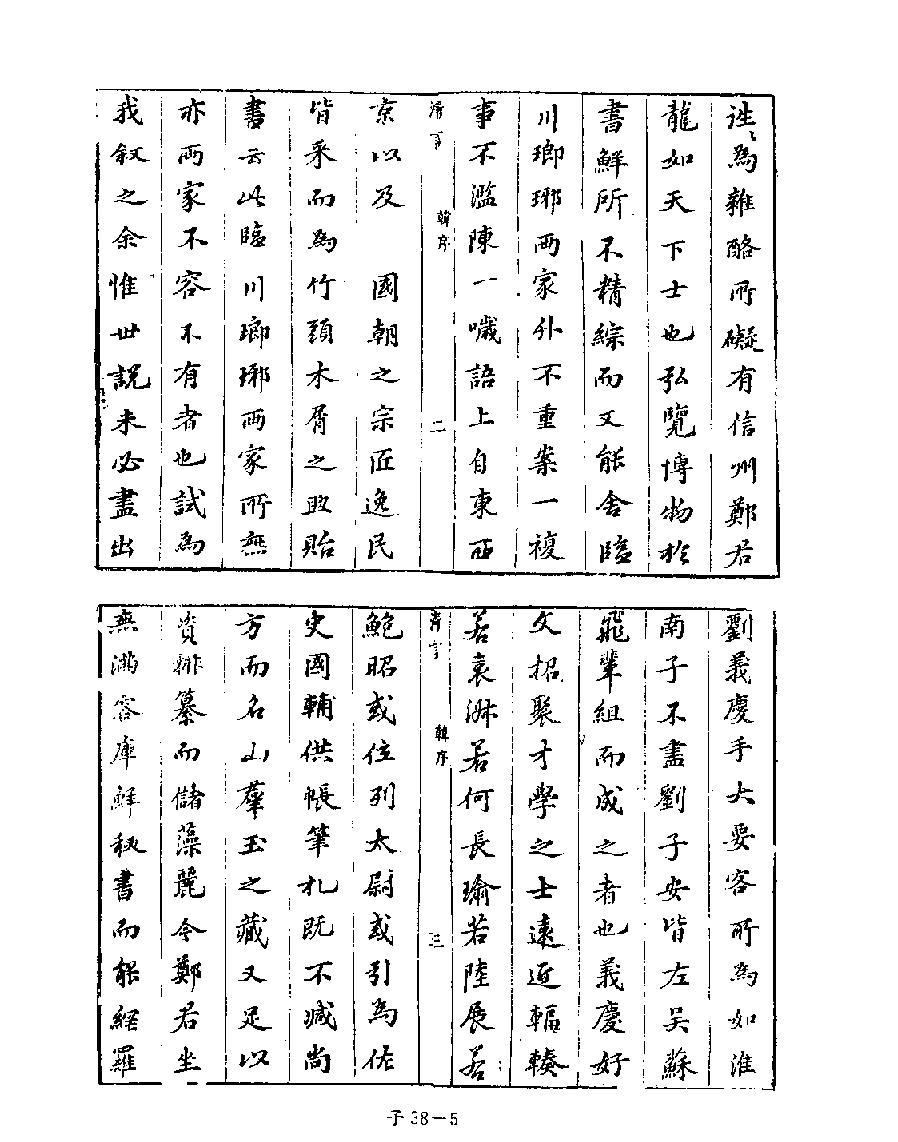 為雜酪所礙有信州鄭君
龍如天下士也弘覽博物於
書鮮所不精綜而又能舍臨
川瑯琊兩家外不重案一複
事不濫陳一噦語上自東西
清言 韓序 二
京以及 國朝之宗匠逸民
皆采而為竹頭木屑之取貽
書云此臨川瑯琊兩家所無
亦兩家不容不有者也試為
我叙之余惟世說未必盡出
劉義慶手大要客所為如淮
南子不盡劉子安皆左吳蘇
飛輩組而成之者也義慶好
文招聚才學之士遠近輻輳
若袁淑若何長瑜若陸展若
清言 韓序 三
鮑昭或位列太尉或引為佐
史國輔供帳筆札既不減尚
方而名山羣玉之藏又足以
資排纂而儲藻麗今鄭君坐
無滿容庫鮮秘書而能經羅
子38—5